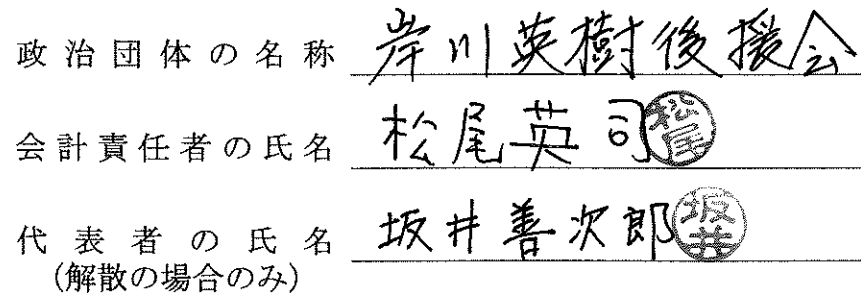 政治団体の名称 岸川英樹後援会
会計責任者の氏名 松尾英司 松尾
代表者の氏名 坂井善次郎 坂井
(解散の場合のみ)